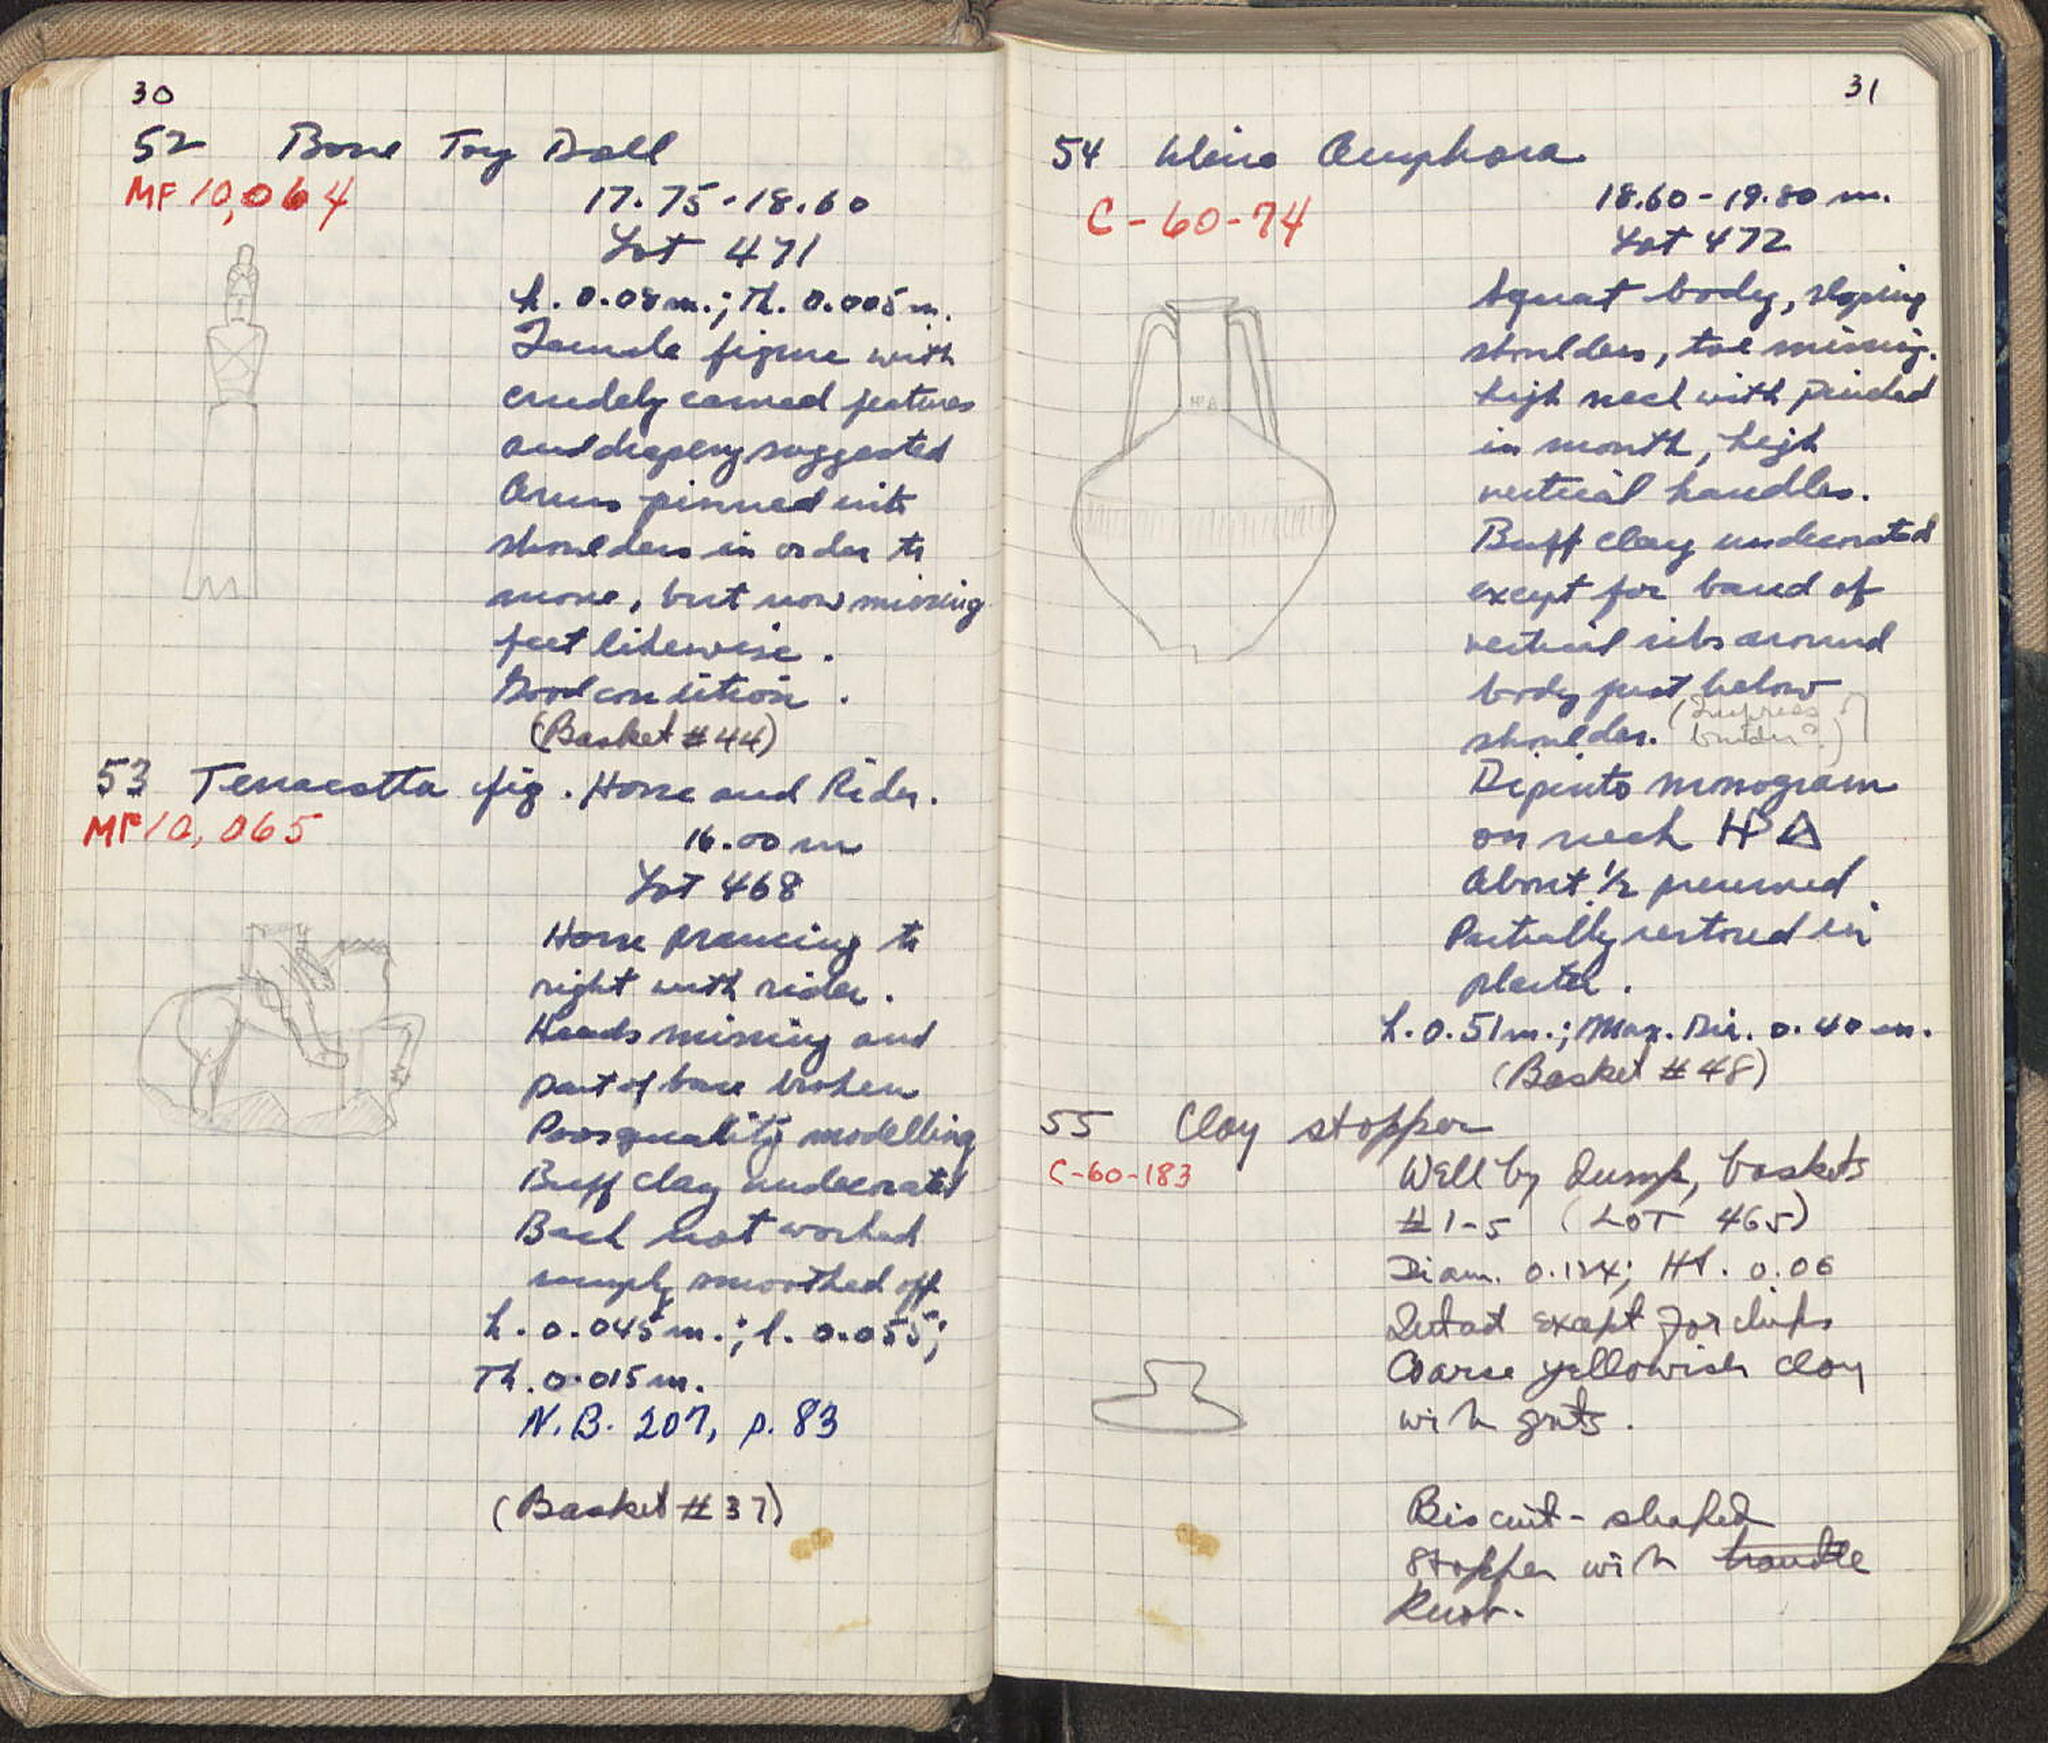 30
52 Bone Toy Doll
MF 10,064
17.75-18.60
Lot 471
h. 0.08m.; Th. 0.005m.
Female figure with
crudely carved features
and drapery suggested
Arms pinned into
shoulders in order to
move, but now missing
feet likewise.
Good condition.
(Basket #44)
53 Terracotta fig. Horse and Rider.
MF 10,065
16.00 m
Lot 468
Horse prancing to
right with rider.
Heads missing and
part of base broken
Poor quality modelling
Buff clay undecorated
Back not worked
simply smoothed off
h. 0.045m.; l. 0.055;
Th. 0.015m.
N.B. 207, p. 83
(Basket #37)
31
54 Wine Amphora
C-60-74
18.60-19.80 m.
Lot 472
Squat body, sloping
shoulders, toe missing.
high neck with pinched
in mouth, high
vertical handles.
Buff clay undecorated
except for band of
vertical ribs around
body just below
shoulder.
Dipinto monogram
on neck HP Δ
About 1/2 preserved
Partially restored in
plaster.
h. 0.51m.; Max. Dia. 0.40 m.
(Basket #48)
55 Clay stopper
C-60-183
Well by Dump, baskets
#1-5 (LOT 465)
Diam. 0.124; Ht. 0.06
Intact except for chips
Coarse yellowish clay
with grits.
Biscuit-shaped
stopper with handle
knob.